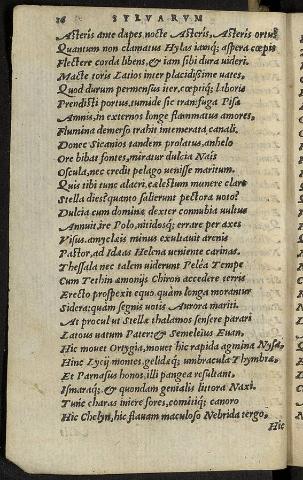 16 SYLVARVM
Asteris ante dapes, nocte Asteris, Asteris ortus.
Quantum non clamatus Hylas iamq; aspera cœpis
Flectere corda libens, & iam sibi dura uideri.
Macte toris Latios inter placidissime uates,
Quod durum permensus iter, cœptiq; laboris
Prendisti portus, tumidæ sic transfuga Pisæ
Amnis, in externos longe flammatus amores,
Flumina demerso trahit intemerata canali,
Donec Sicanios tandem prolatus, anhelo
Ore bibat fontes, miratur dulcia Nais
Oscula, nec credit pelago uenisse maritum.
Quis tibi tunc alacri, cælestum munere claro
Stella dies? quanto salierunt pectora uoto?
Dulcia cum dominæ dexter connubia uultus
Annuit, ire Polo, nitidosq; errare per axes
Visus. amyclæis minus exultauit arenis
Pastor, ad Idæas Helena ueniente carinas.
Thessala nec talem uiderunt Peléa Tempe
Cum Tethin æmonijs Chiron accedere terris
Erecto prospexit equo, quàm longa morantur
Sidera: quàm segnis uotis Aurora mariti.
At procul ut Stellæ thalamos sensere parari
Latous uatum Pater: & Semeleius Euan,
Hic mouet Ortygia, mouet hic rapida agmina Nysa,
Hinc Lycij montes, gelidæq; umbracula Thymbræ,
Et Parnasus honos, illi pangea resultant,
Ismaraq;. & quondam genialis littora Naxi.
Tunc charas iniere fores, comitiq; canoro
Hic Chelyn, hic flauam maculoso Nebrida tergo,
Hic